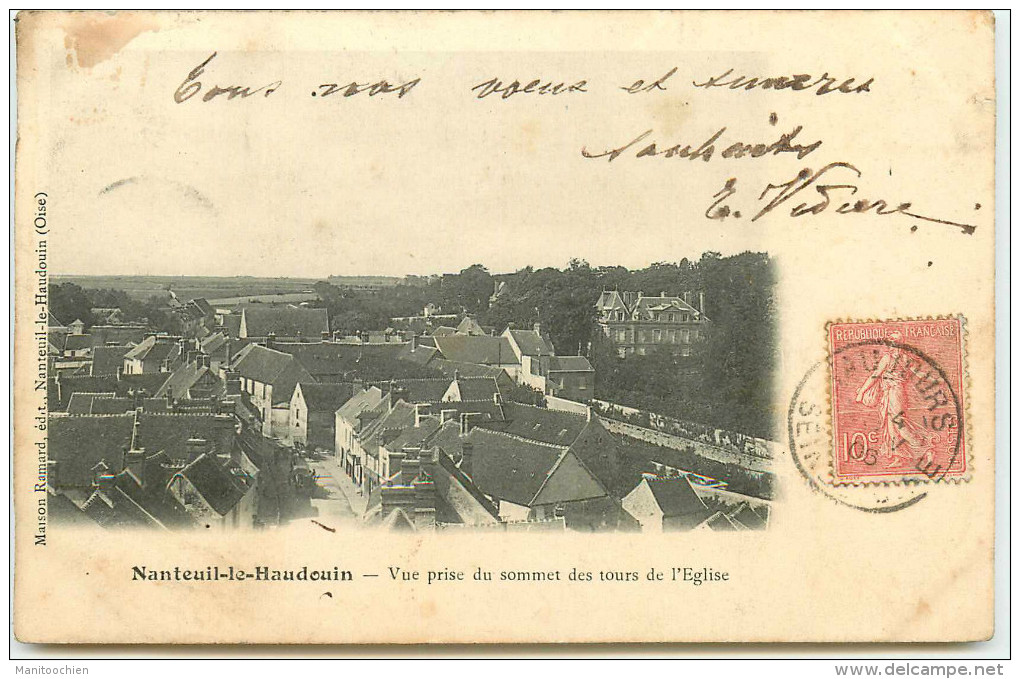 Tous nos voeux et sincères
souhaits
E. Vidière
Maison Ramard, édit., Nanteuil-le-Haudouin (Oise)
REPUBLIQUE FRANÇAISE
10c
Nanteuil-le-Haudouin — Vue prise du sommet des tours de l'Eglise
Manitoochien
www.delcampe.net